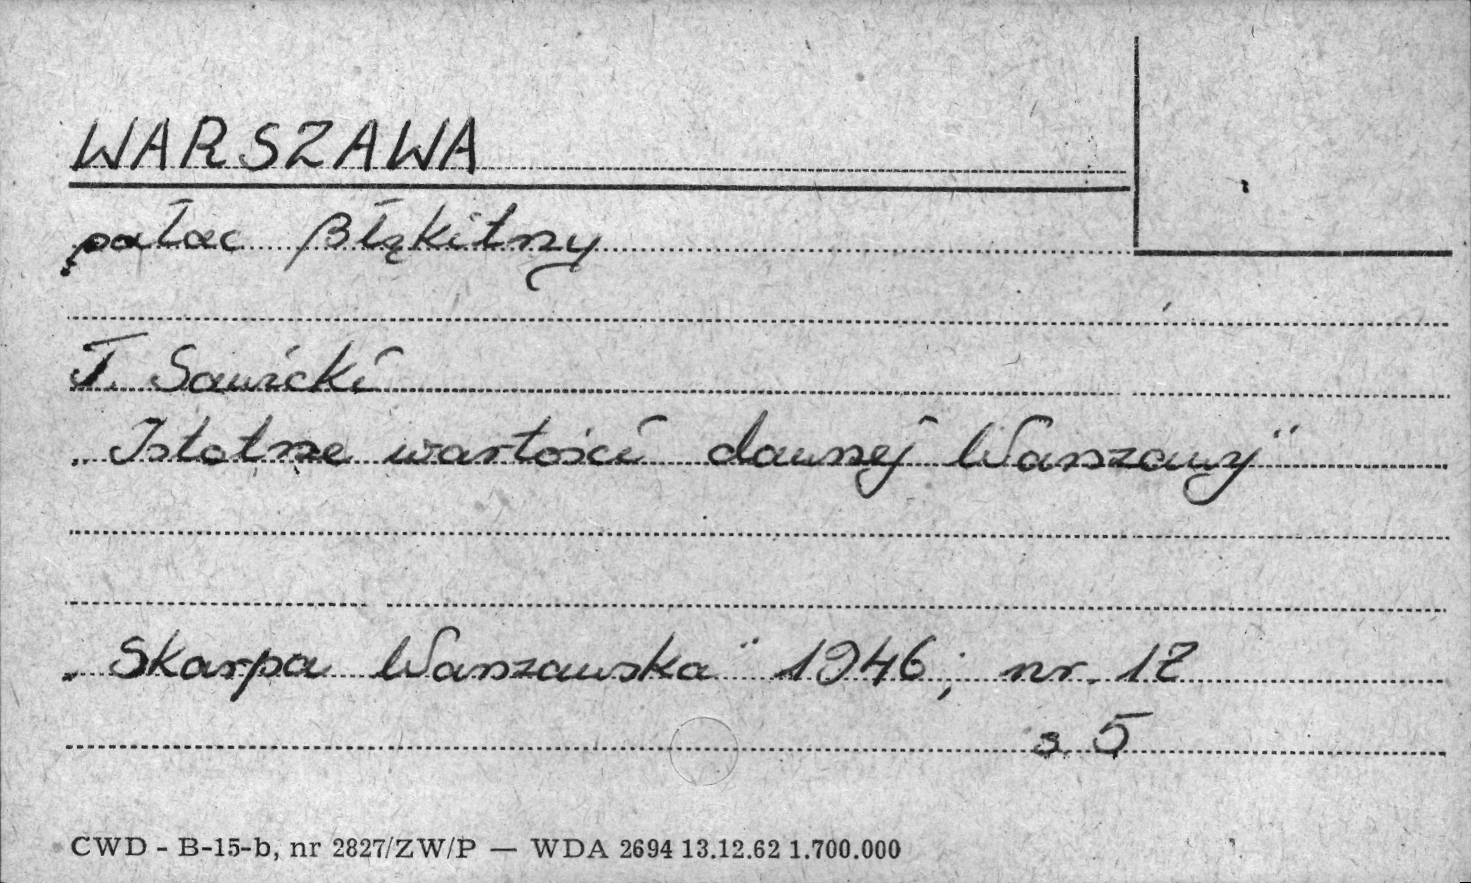 WARSZAWA
pałac Błękitny
T. Sawicki
„Istotne wartości dawnej Warszawy"
„Skarpa Warszawska" 1946; nr. 12
s. 5
CWD - B-15-b, nr 2827/ZW/P — WDA 2694 13.12.62 1.700.000